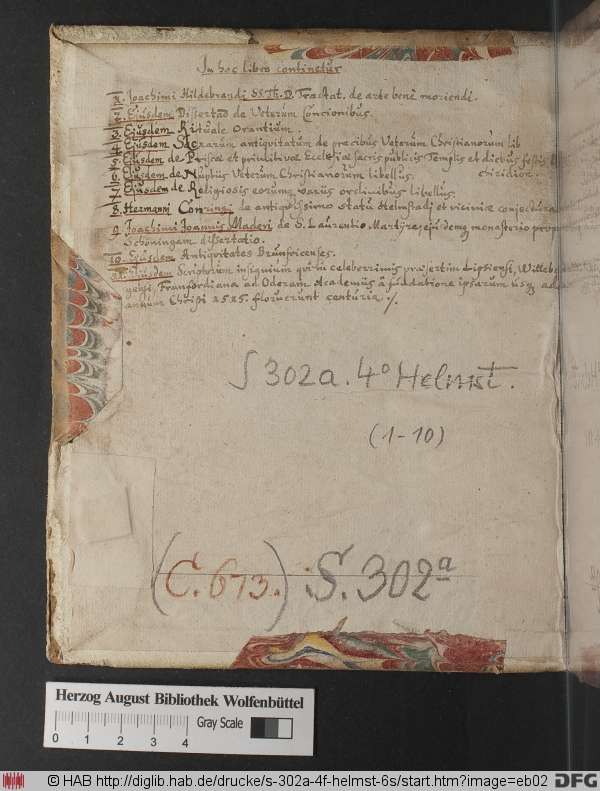 In hoc libro continetur
1. Joachimi Hildebrandi SS. Th. D. Tractat. de arte benè moriendi.
2. Ejusdem Dissertad de Veterum Concionibus.
3. Ejusdem Rituale Orantium.
4. Ejusdem Sacrarum antiquitatum de precibus Veterum Christianorum lib
5. Ejusdem de Priscæ et primitivæ Ecclesiæ sacris publicis Templis et diebus festis
chiridion.
6. Ejusdem de Nuptiis Veterum Christianorum libellus.
7. Ejusdem de Religiosis eorumq variis ordinibus libellus.
8. Hermanni Conringi de antiquissimo statu Helmstadj et viciniæ conjectura
9. Joachimi Joannis Maderi de S. Laurentio Martyre, ejusdemq monasterio prope
Schöningam dissertatio.
10. Ejusdem Antiquitates Brunsvicenses.
Ejusdem Scriptorum insignium qui in celeberrimis præsertim Lipsiensi, Witteb
gensi, Francfordiana ad Oderam Academiis à fundatione ipsarum usq ad
annum Christi 1515. floruerunt centuria ./.
S 302a. 4° Helmst.
(1-10)
(C. 673.) S. 302a
Herzog August Bibliothek Wolfenbüttel
Gray Scale
0 1 2 3 4
© HAB http://diglib.hab.de/drucke/s-302a-4f-helmst-6s/start.htm?image=eb02
DFG